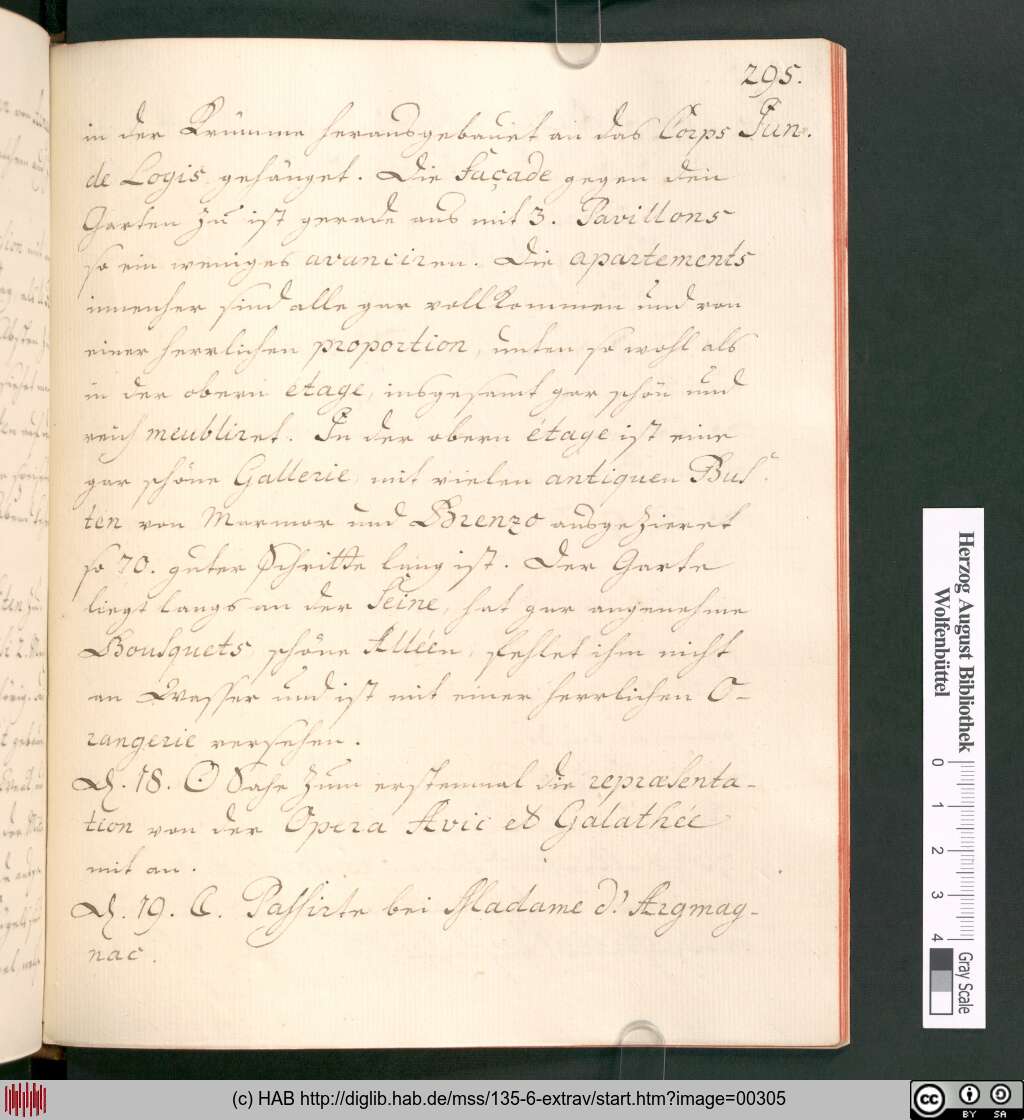 295.
in der Krümme herausgebauet an das Corps Jun.
de Logis gehänget. Die façade gegen den
Garten zu ist gerade aus mit 3. Pavillons
so ein weniges avanciren. Die apartements
innenher sind alle gar vollkommen und von
einer herrlichen proportion, unten so wohl als
in der obern etage, insgesamt gar schön und
reich meubliret. In der obern étage ist eine
gar schöne Gallerie, mit vielen antiquen Bus-
ten von Marmor und Brenzo ausgezieret
so 70. guter Schritte lang ist. Der Garte
liegt langs an der Seine, hat gar angenehme
Bousquets, schöne Alléen, fehlet ihm nicht
an Wasser und ist mit einer herrlichen O-
rangerie versehen.
D. 18. ☉ Sahe zum erstenmal die repræsenta-
tion von der Opera Avic et Galathée
mit an.
D. 19. ☾. Passirte bei Madame d'Argmag-
nac.
Herzog August Bibliothek
Wolfenbüttel
0 1 2 3 4
Gray Scale
(c) HAB http://diglib.hab.de/mss/135-6-extrav/start.htm?image=00305
cc BY SA